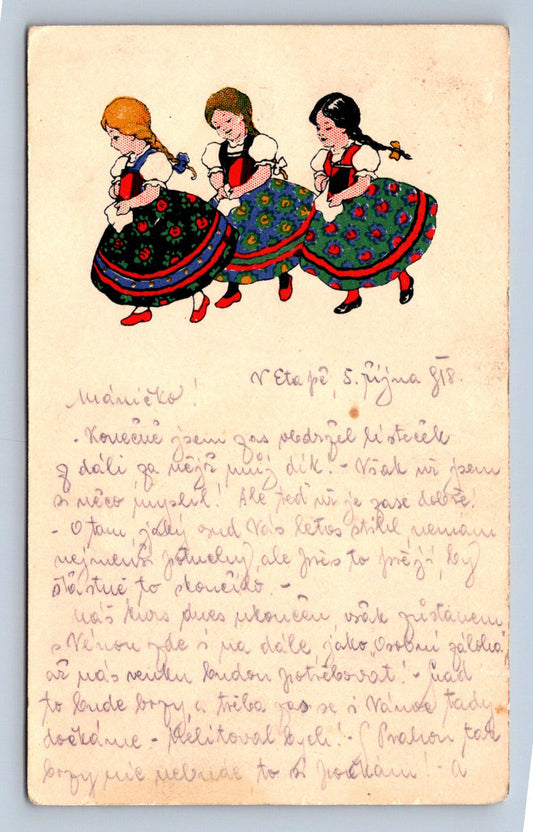 V Etapě, 5. října 918.
Máničko!
- Konečně jsem zas obdržel lísteček
z dáli za nějž můj dík. - Však už jsem
si něco myslil! Ale teď už je zase dobře!
- O tom, jaký osud Vás letos stihl nemám
nejmenší ale přes to přeji, by
šťastně to skončilo. -
Náš kurs dnes ukončen, však zůstanem
s Vénou zde i na dále, jako „Osobní záloha“,
až nás venku budou potřebovat! - Snad
to bude brzy a třeba zas se i Vánoc tady
dočkáme. - Nelitoval bych! - S Prahou tak
brzy nic nebude to si počkám! - A